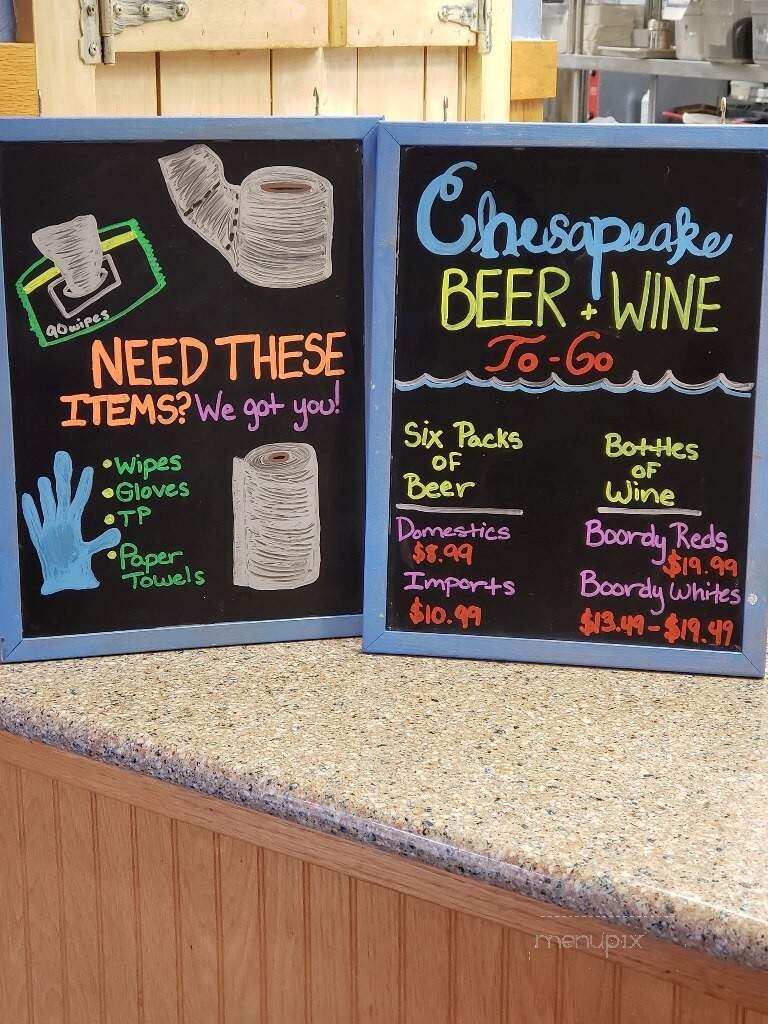 90 wipes
NEED THESE
ITEMS? We got you!
• Wipes
• Gloves
• TP
• Paper
Towels
Chesapeake
BEER + WINE
To-Go
Six Packs
OF
Beer
Domestics
$8.99
Imports
$10.99
Bottles
OF
Wine
Boordy Reds
$19.99
Boordy Whites
$13.49-$19.49
menupix